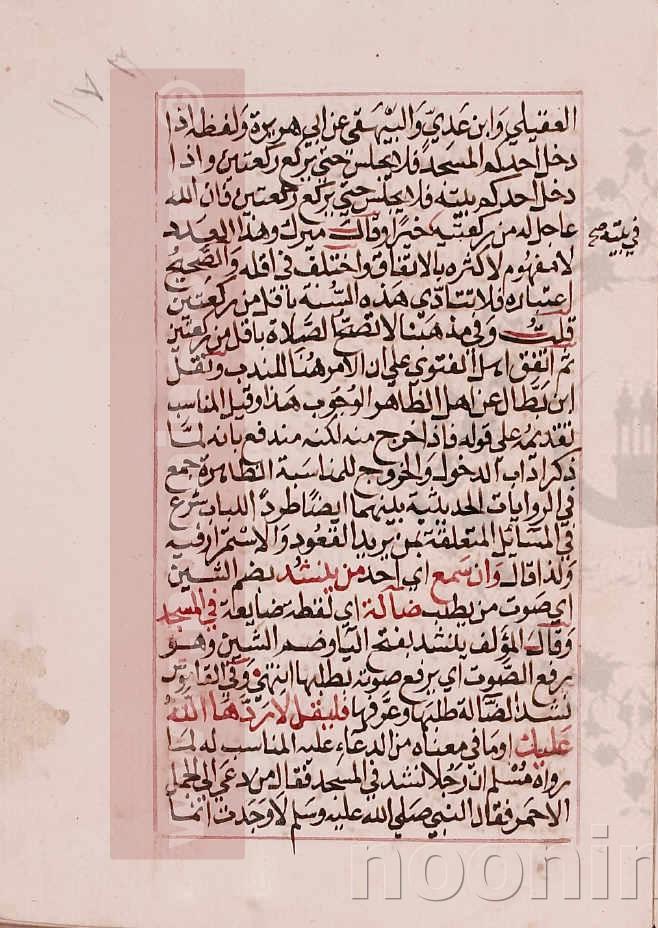 العقيلي وابن عدي والبيهقي عن ابي هريرة ولفظه اذا
دخل احدكم المسجد فلا يجلس حتى يركع ركعتين واذا
دخل احدكم بيته فلا يجلس حتى يركع ركعتين فان الله
جاعل له من ركعتيه خيرا وقال ميرك وهذا العدد
في بيته صح
لا مفهوم لاكثره بالاتفاق واختلف في اقله والصحيح
اعتباره فلا تتادى هذه السنة باقل من ركعتين
قلت وفي مذهبنا لا تصح الصلاة باقل من ركعتين
ثم اتفق اهل الفتوى على ان الامر هنا للندب ونقل
ابن بطال عن اهل الظاهر الوجوب هذا وقيل المناسب
تقديمه على قوله فاذا خرج منه لكنه مندفع بانه لما
ذكر اداب الدخول والخروج للمناسبة الظاهرة جمع
في الروايات الحديثية بينهما ايضا طردا للباب شرع
في المسائل المتعلقة بمن يريد القعود والاستمرار فيه
ولذا قال وان سمع اي احد من ينشد بضم الشين
اي صوت من يطلب ضالة اي لقطة ضايعة في المسجد
وقال المؤلف ينشد بفتح اليا وضم الشين وهو
رفع الصوت اي يرفع صوته يطلبها انتهى وفي القاموس
نشد الضالة طلبها وعرفها فليقل لا ردها الله
عليك او ما في معناه من الدعاء عليه المناسب له لما
رواه مسلم ان رجلا نشد في المسجد فقال من دعي الى الجمل
الاحمر فقال النبي صلي الله عليه وسلم لا وجدت انما
noonin